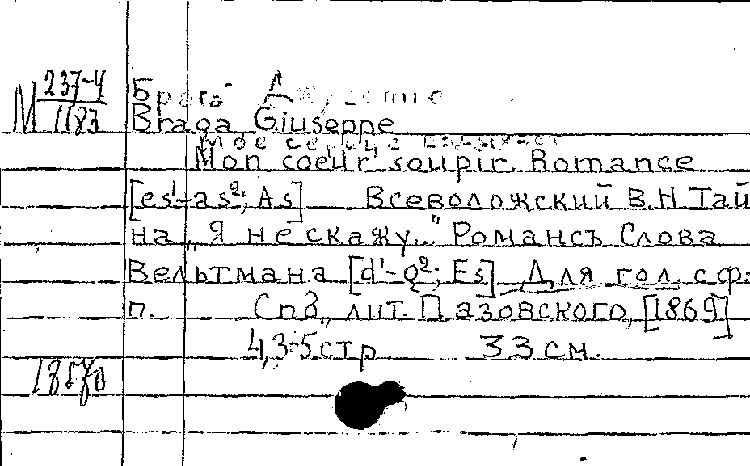 М 237-4/1183
Брага Джузеппе
Braga Giuseppe
Мое сердце вздыхает
Mon coeur soupir. Romance
[es¹-as²; As] Всеволожский В.Н. Тай
на „Я не скажу..." Романсъ Слова
Вельтмана [d¹-g²; Es] Для гол. с ф-
п. Спб., лит. Пазовского, [1869]
4,3-5 стр 33 см.